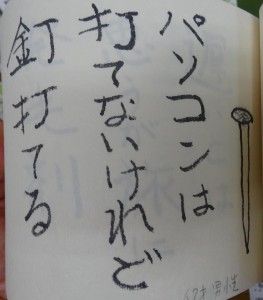 パソコンは
打てないけれど
釘打てる